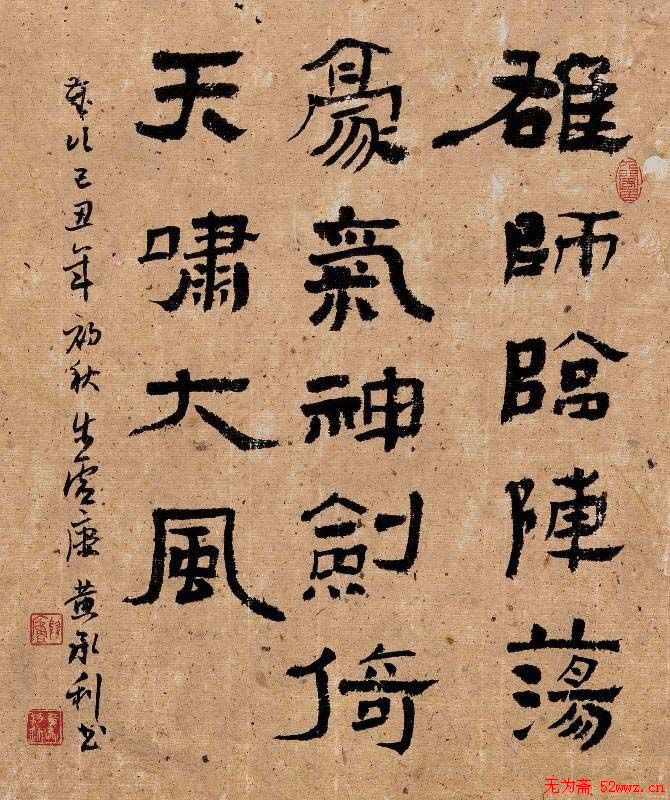 雄師臨陣蕩
豪氣神劍倚
天嘯大風
歲次己丑年初秋黄利书
无为斋 52wwz.cn